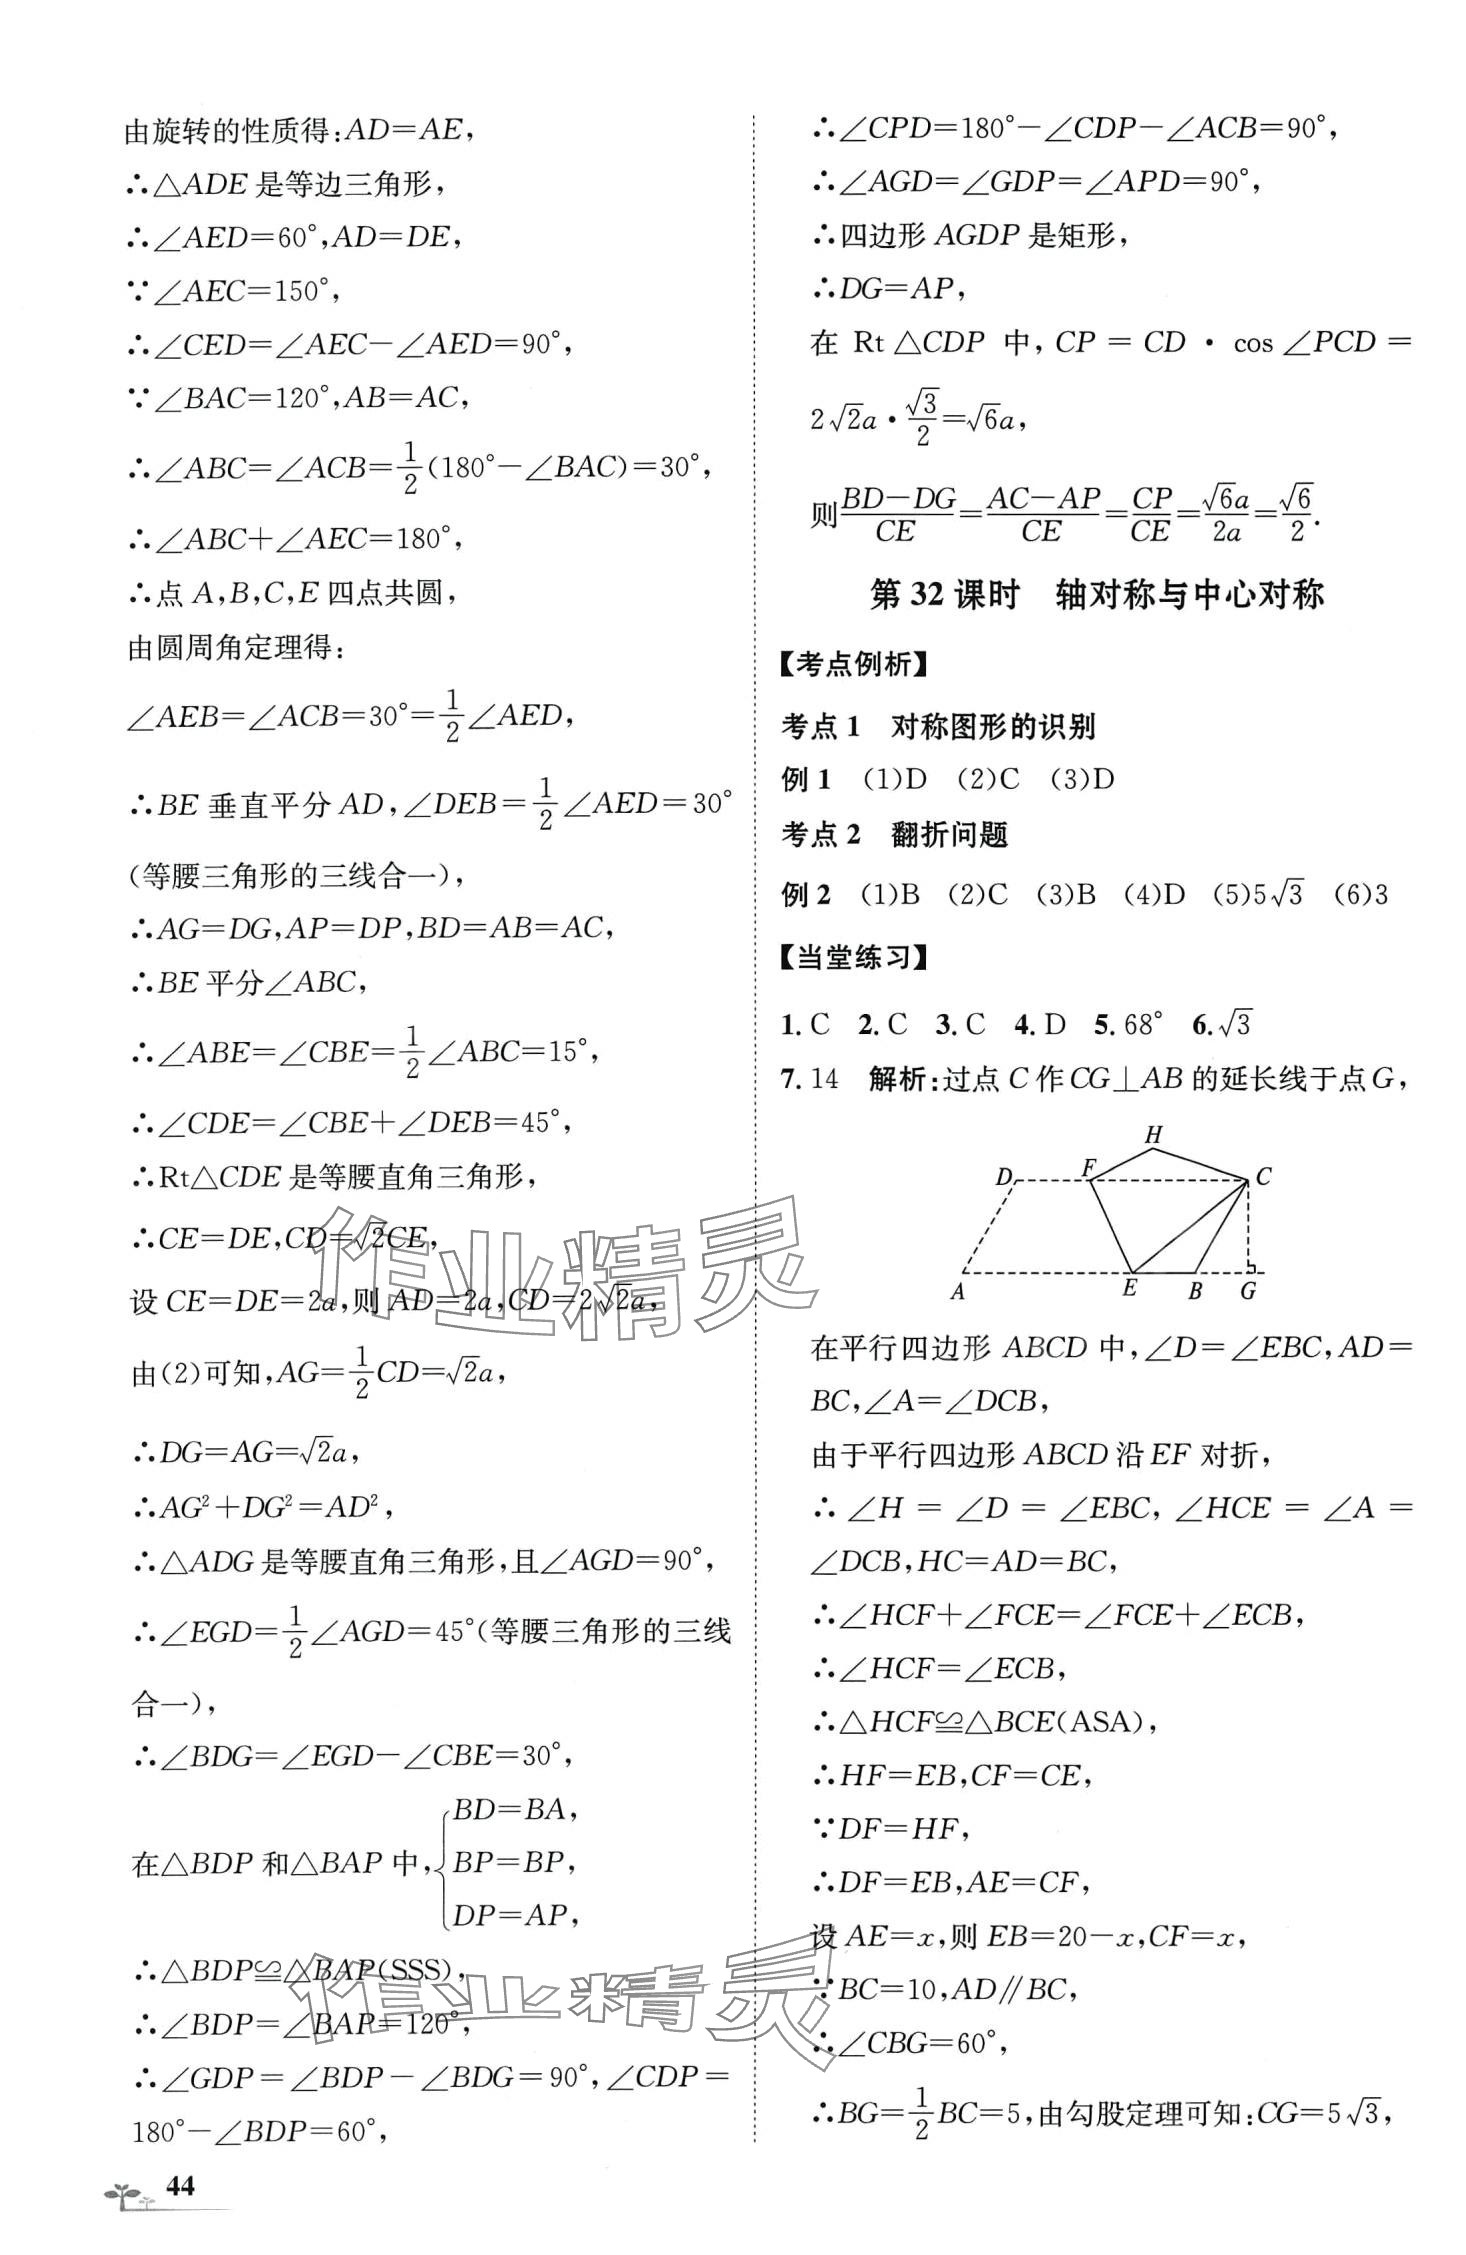 由旋转的性质得:AD=AE,
∴△ADE 是等边三角形,
∴∠AED=60°,AD=DE,
∵∠AEC=150°,
∴∠CED=∠AEC-∠AED=90°,
∵∠BAC=120°,AB=AC,
∴∠ABC=∠ACB=1/2(180°-∠BAC)=30°,
∴∠ABC+∠AEC=180°,
∴点 A,B,C,E 四点共圆,
由圆周角定理得:
∠AEB=∠ACB=30°=1/2∠AED,
∴BE 垂直平分 AD,∠DEB=1/2∠AED=30°
(等腰三角形的三线合一),
∴AG=DG,AP=DP,BD=AB=AC,
∴BE 平分∠ABC,
∴∠ABE=∠CBE=1/2∠ABC=15°,
∴∠CDE=∠CBE+∠DEB=45°,
∴Rt△CDE 是等腰直角三角形,
∴CE=DE,CD=√2CE,
设 CE=DE=2a,则 AD=2a,CD=2√2a,
由(2)可知,AG=1/2CD=√2a,
∴DG=AG=√2a,
∴AG²+DG²=AD²,
∴△ADG 是等腰直角三角形,且∠AGD=90°,
∴∠EGD=1/2∠AGD=45°(等腰三角形的三线
合一),
∴∠BDG=∠EGD-∠CBE=30°,
在△BDP 和△BAP 中,{BD=BA,
BP=BP,
DP=AP,
∴△BDP≌△BAP(SSS),
∴∠BDP=∠BAP=120°,
∴∠GDP=∠BDP-∠BDG=90°,∠CDP=
180°-∠BDP=60°,
44
∴∠CPD=180°-∠CDP-∠ACB=90°,
∴∠AGD=∠GDP=∠APD=90°,
∴四边形 AGDP 是矩形,
∴DG=AP,
在 Rt△CDP 中,CP=CD·cos∠PCD=
2√2a·√3/2=√6a,
则(BD-DG)/CE=(AC-AP)/CE=CP/CE=√6a/2a=√6/2.
第 32 课时 轴对称与中心对称
【考点例析】
考点 1 对称图形的识别
例 1 (1)D (2)C (3)D
考点 2 翻折问题
例 2 (1)B (2)C (3)B (4)D (5)5√3 (6)3
【当堂练习】
1. C 2. C 3. C 4. D 5. 68° 6. √3
7. 14 解析:过点 C 作 CG⊥AB 的延长线于点 G,
H
D F C
A E B G
在平行四边形 ABCD 中,∠D=∠EBC,AD=
BC,∠A=∠DCB,
由于平行四边形 ABCD 沿 EF 对折,
∴∠H=∠D=∠EBC,∠HCE=∠A=
∠DCB,HC=AD=BC,
∴∠HCF+∠FCE=∠FCE+∠ECB,
∴∠HCF=∠ECB,
∴△HCF≌△BCE(ASA),
∴HF=EB,CF=CE,
∵DF=HF,
∴DF=EB,AE=CF,
设 AE=x,则 EB=20-x,CF=x,
∵BC=10,AD∥BC,
∴∠CBG=60°,
∴BG=1/2BC=5,由勾股定理可知:CG=5√3,
作业精灵
作业精灵